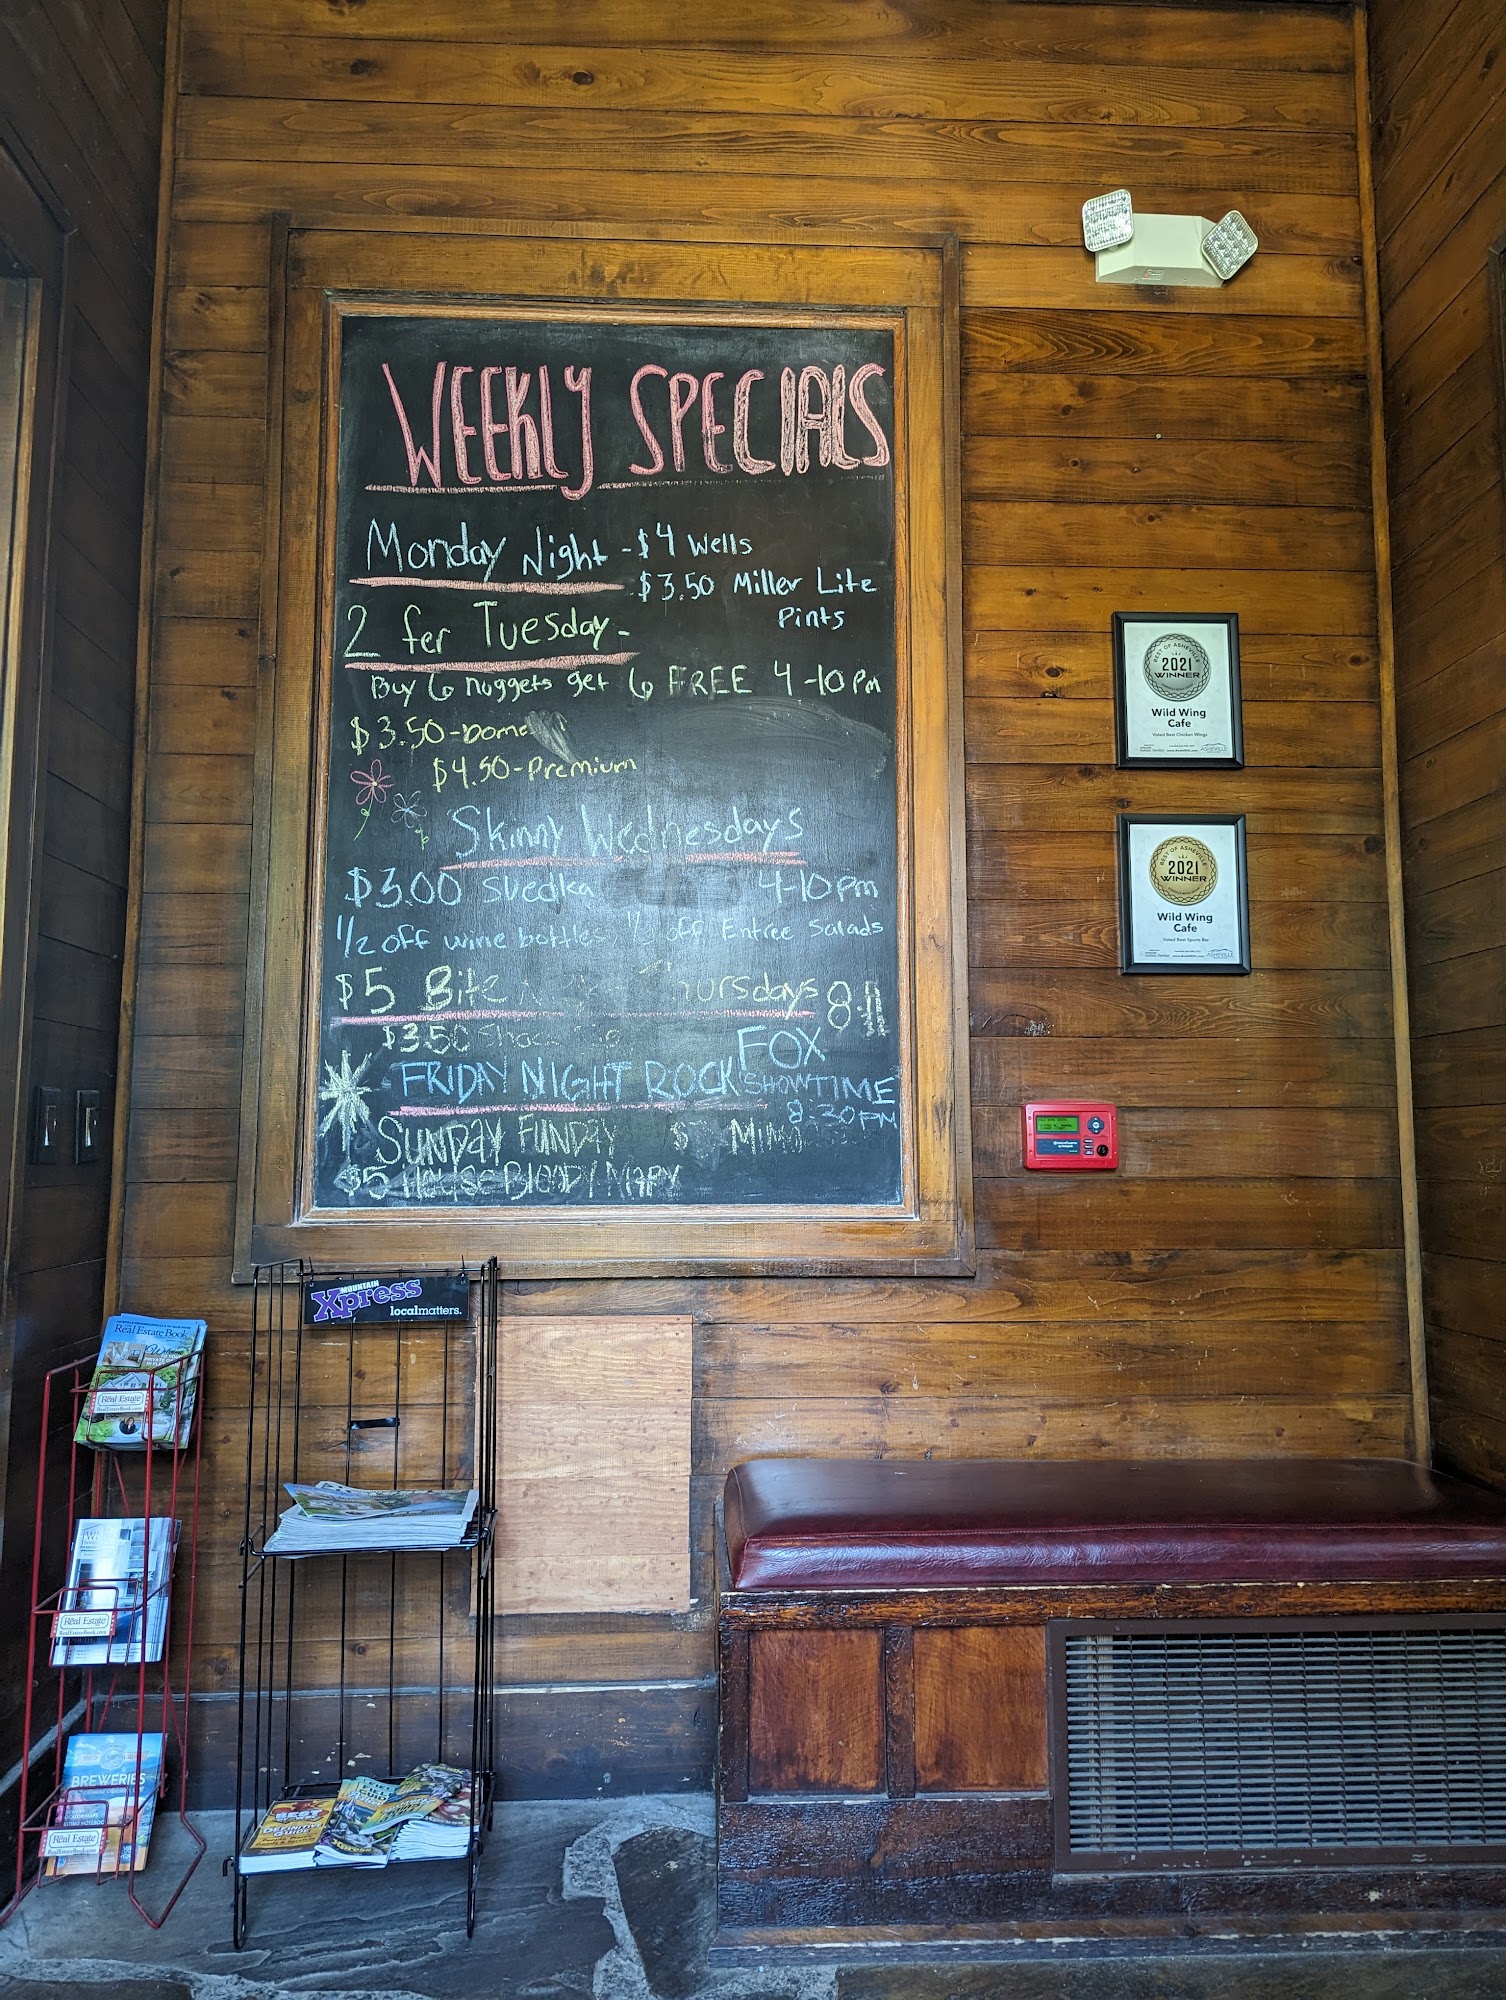 WEEKLY SPECIALS
Monday Night - $4 Wells
$3.50 Miller Lite
Pints
2 fer Tuesday -
Buy 6 nuggets get 6 FREE 4-10pm
$3.50-Dome
$4.50-Premium
Skinny Wednesdays
$3.00 Svedka 4-10pm
1/2 off wine bottles 1/2 off Entree Salads
$5 Bite Thursdays 8-11
$3.50
FRIDAY NIGHT ROCK FOX
SHOWTIME
8:30PM
SUNDAY FUNDAY $ MIMO
$5 HOUSE BLOODY MARY
BEST OF ASHEVILLE
2021
WINNER
Wild Wing
Cafe
Voted Best Chicken Wings
ASHEVILLE
BEST OF ASHEVILLE
2021
WINNER
Wild Wing
Cafe
Voted Best Sports Bar
ASHEVILLE
MOUNTAIN
Xpress
localmatters.
Real Estate Book
Real Estate
Real Estate
RealEstateBook.com
BREWERIES
Real Estate
RealEstateBook.com
BEST
DEFINITIVE
GUIDE